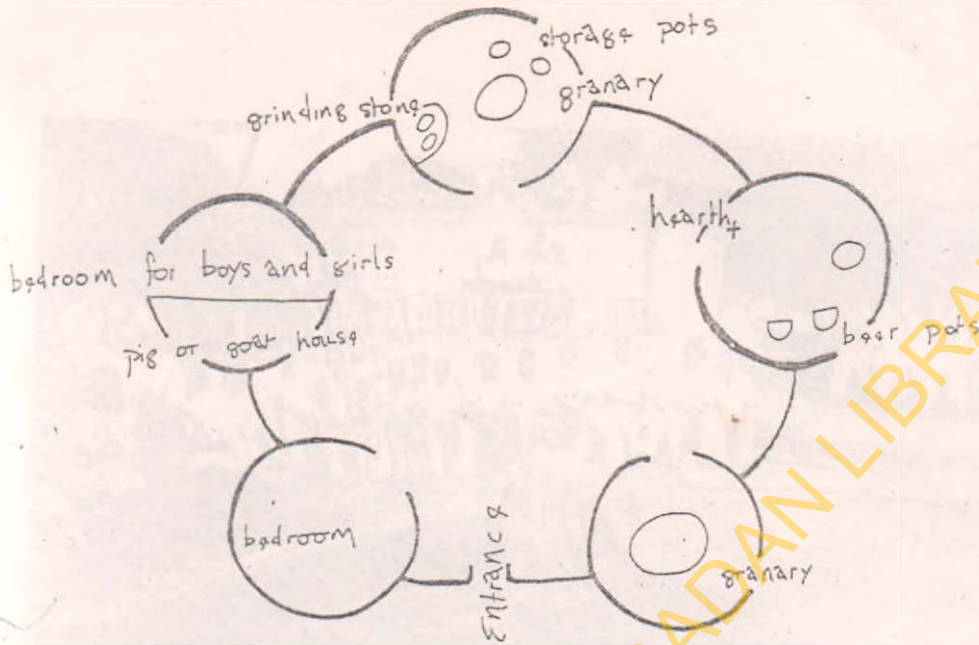 storage pots
granary
grinding stone
hearth
bedroom for boys and girls
pig or goat house
beer pots
bedroom
Entrance
granary
ADAN LIBRA